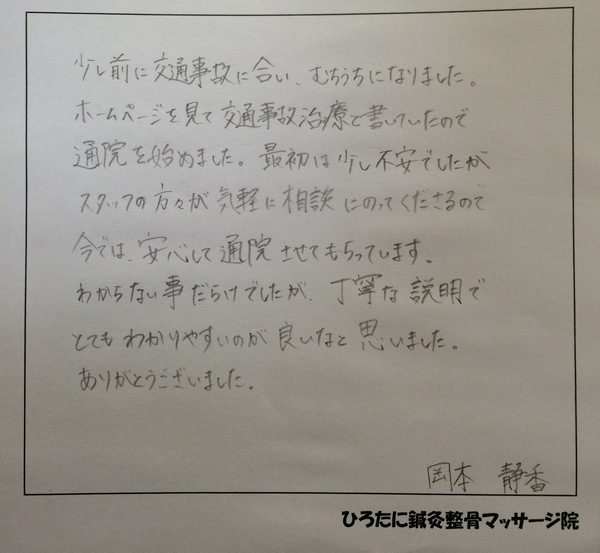 少し前に交通事故に合い、むちうちになりました。
ホームページを見て交通事故治療と書いていたので
通院を始めました。最初は少し不安でしたが
スタッフの方々が気軽に相談にのってくださるので
今では、安心して通院させてもらっています。
わからない事だらけでしたが、丁寧な説明で
とてもわかりやすいのが良いなと思いました。
ありがとうございました。
岡本 静香
ひろたに鍼灸整骨マッサージ院